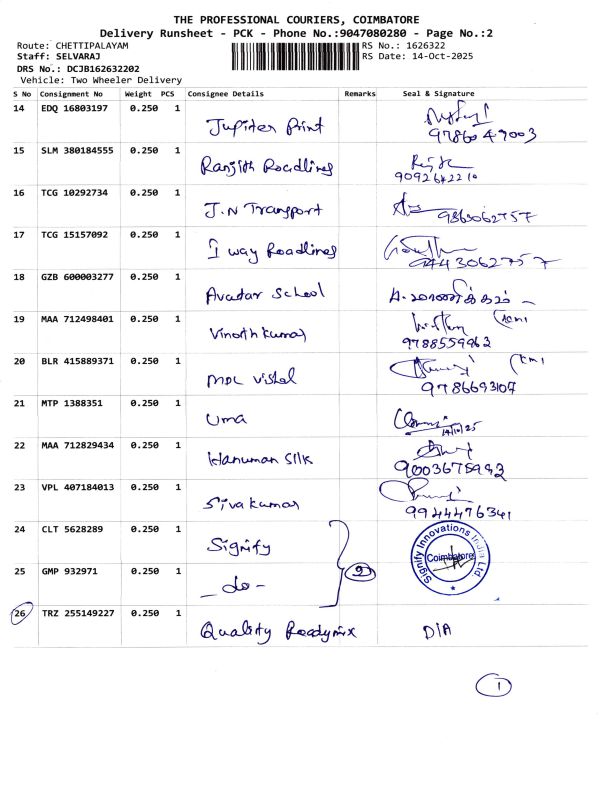 THE PROFESSIONAL COURIERS, COIMBATORE
Delivery Runsheet - PCK - Phone No.:9047080280 - Page No.:2
Route: CHETTIPALAYAM RS No.: 1626322
Staff: SELVARAJ RS Date: 14-Oct-2025
DRS No.: DCJB162632202
Vehicle: Two Wheeler Delivery
S No Consignment No Weight PCS Consignee Details Remarks Seal & Signature
14 EDQ 16803197 0.250 1
Jupiter Print 9786047003
15 SLM 380184555 0.250 1
Ranjith Roadlines 9092642210
16 TCG 10292734 0.250 1
J.N Transport 9863062757
17 TCG 15157092 0.250 1
I way Roadlines 9443062757
18 GZB 600003277 0.250 1
Avatar School
19 MAA 712498401 0.250 1
Vinoth kumar 9788559963
20 BLR 415889371 0.250 1
MDL Vistel 9786693107
21 MTP 1388351 0.250 1
Uma 14/10/25
22 MAA 712829434 0.250 1
Hanuman Silk 9003675992
23 VPL 407184013 0.250 1
Sivakumar 9944476341
24 CLT 5628289 0.250 1
Signify Signify Innovations India Ltd. Coimbatore
25 GMP 932971 0.250 1
- do - 2
26 TRZ 255149227 0.250 1
Quality Readymix D/A
1